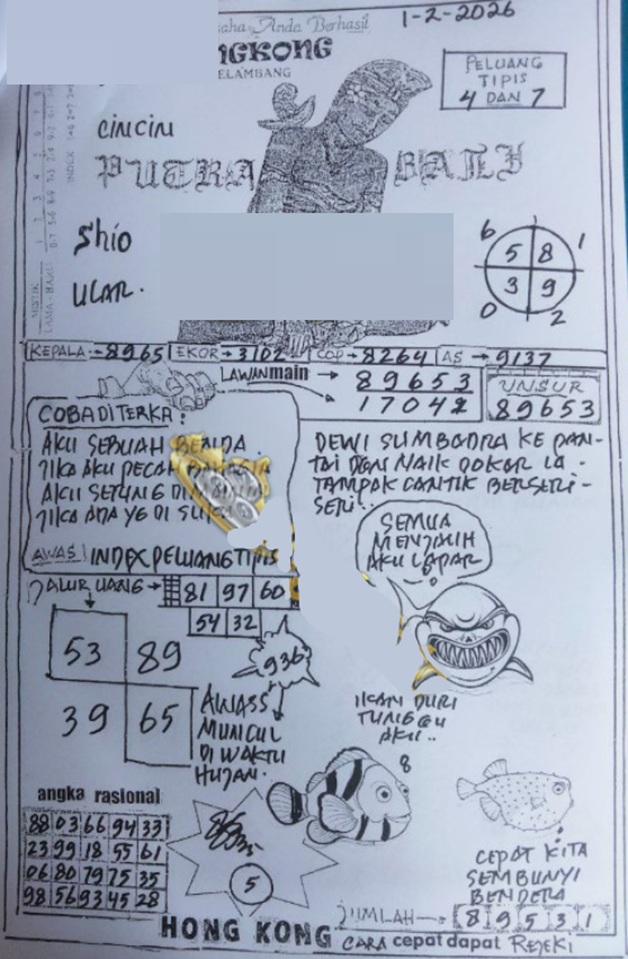 1-2-2026
Anda Berhasil
NGKONG
ELAMBANG
PELUANG
TIPIS
4 DAN 7
CINCIN
PUTRA BALI
Shio
ULAR.
6 1
5 8
3 9
0 2
KEPALA → 8965 EKOR → 3102 COP → 8264 AS → 9137
LAWAN main → 89653
17042
UNSUR
89653
COBA DITERKA :
AKU SEBUAH BENDA.
JIKA AKU PECAH
AKU SERING
JIKA ADA YG DI
AWAS! INDEX PELUANG TIPIS
DEWI SUMBODRA KE PAN-
TAI DGN NAIK DOKAR IA.
TAMPAK CANTIK BERSERI-
SERI..
SEMUA
MENJAUH
AKU LAPAR
JALUR UANG → 81 97 60
54 32
53 89
39 65
936
AWASS
MUNCUL
DI WAKTU
HUJAN.
IKAN DURI
TUNGGU
AKU..
8
angka rasional
88 03 66 94 33
23 99 18 55 61
06 80 79 75 35
98 56 93 45 28
5
CEPAT KITA
SEMBUNYI
BENDERA
JUMLAH → 8 9 5 3 1
HONG KONG CARA cepat dapat REJEKI